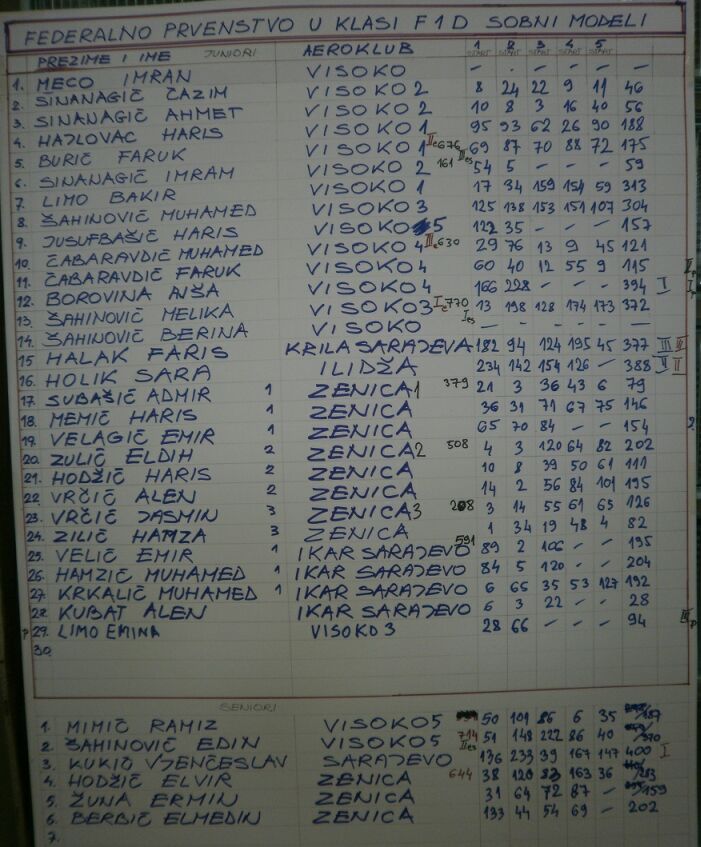 FEDERALNO PRVENSTVO U KLASI F1D SOBNI MODELI
PREZIME I IME JUNIORI AEROKLUB 1 2 3 4 5
1. MECO IMRAN VISOKO – – – – – –
2. SINANAGIĆ ĆAZIM VISOKO 2 8 24 22 9 11 46
3. SINANAGIĆ AHMET VISOKO 2 10 8 3 16 40 56
4. HAJLOVAC HARIS VISOKO 1 95 93 62 26 90 188
5. BURIĆ FARUK VISOKO 1 IIe 676 69 87 70 88 72 175
6. SINANAGIĆ IMRAM VISOKO 2 161 IIIes 54 5 – – – 59
7. LIMO BAKIR VISOKO 1 17 34 159 154 59 313
8. ŠAHINOVIĆ MUHAMED VISOKO 3 125 138 153 151 107 304
9. JUSUFBAŠIĆ HARIS VISOKO 5 122 35 – – – 157
10. ČABARAVDIĆ MUHAMED VISOKO 4 IIIe 630 29 76 13 9 45 121
11. ČABARAVDIĆ FARUK VISOKO 4 60 40 12 55 9 115 IIp
12. BOROVINA AJŠA VISOKO 4 166 228 – – – 394 I Ip
13. ŠAHINOVIĆ MELIKA VISOKO 3 Ie 770 13 198 128 174 173 372
14. ŠAHINOVIĆ BERINA VISOKO Ies – – – – – –
15 HALAK FARIS KRILA SARAJEVA 182 94 124 195 45 377 III III
16. HOLIK SARA ILIDŽA 234 142 154 126 – 388 II II
17. SUBAŠIĆ ADMIR 1 ZENICA 1 379 21 3 36 43 6 79
18. MEMIĆ HARIS 1 ZENICA 36 31 71 67 75 146
19. VELAGIĆ EMIR 1 ZENICA 65 70 84 – – 154
20. ZULIĆ ELDIH 2 ZENICA 2 508 4 3 120 64 82 202
21. HODŽIĆ HARIS 2 ZENICA 10 8 39 50 61 111
22. VRČIĆ ALEN 2 ZENICA 14 2 56 84 101 195
23. VRČIĆ JASMIN 3 ZENICA 3 208 3 14 55 61 65 126
24. ZILIĆ HAMZA 3 ZENICA 1 34 19 48 4 82
25. VELIĆ EMIR 1 IKAR SARAJEVO 591 89 2 106 – – 195
26. HAMZIĆ MUHAMED 1 IKAR SARAJEVO 84 5 120 – – 204
27. KRKALIĆ MUHAMED 1 IKAR SARAJEVO 6 65 35 53 127 192
28. KUBAT ALEN IKAR SARAJEVO 6 3 22 – – 28
P 29. LIMO EMINA VISOKO 3 28 66 – – – 94 IIIp
30.
SENIORI
1. MIMIĆ RAMIZ VISOKO 5 50 101 86 6 35 187
2. ŠAHINOVIĆ EDIN VISOKO 5 714 IIes 51 148 222 86 40 370
3. KUKIĆ VJENČESLAV SARAJEVO 136 233 39 167 147 400 I
4. HODŽIĆ ELVIR ZENICA 644 38 120 83 163 36 283
5. ŽUNA ERMIN ZENICA 31 64 72 87 – 159
6. BERBIĆ ELMEDIN ZENICA 133 44 54 69 – 202
7.